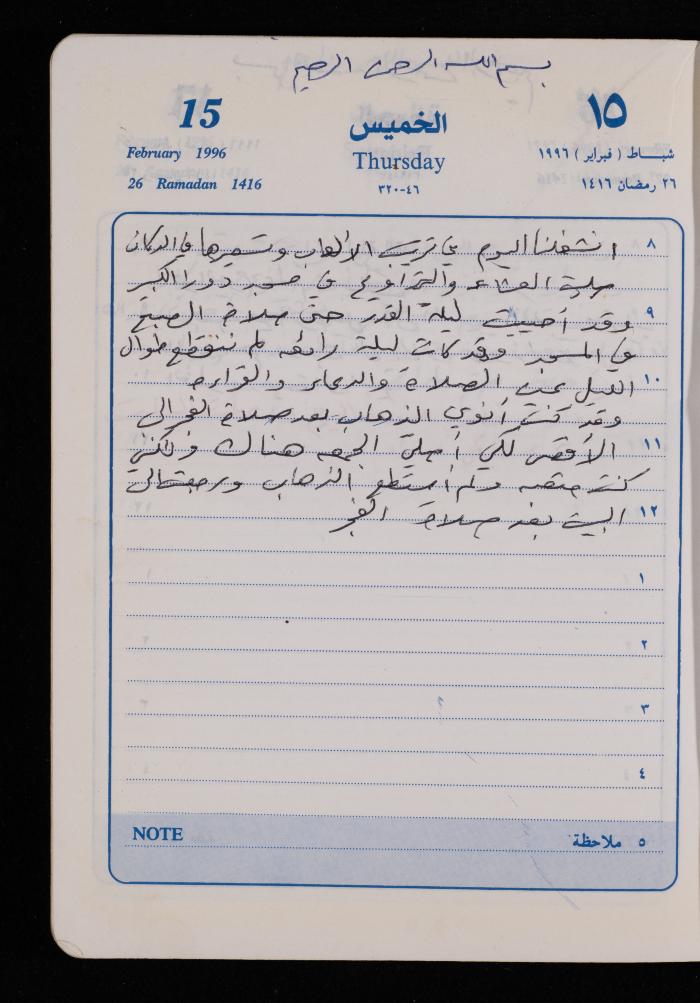 بسم الله الرحمن الرحيم
15 الخميس ١٥
February 1996 Thursday شباط ( فبراير ) ١٩٩٦
26 Ramadan 1416 ٤٦-٣٢٠ ٢٦ رمضان ١٤١٦
٨ انشغلنا اليوم في ترتيب الألعاب وتسعيرها في الدكان
صليت العشاء والتراويح في مسجد دورا الكبير
٩ وقد أحييت ليلة القدر حتى صلاة الصبح
في المسجد وقد كانت ليلة رائعه لم ننقطع طوال
١٠ الليل عن الصلاة والدعاء والقراءه
وقد كنت أنوي الذهاب بعد صلاة الفجر الى
١١ الأقصى لكي أصلي الجمعه هناك ولكنني
كنت متعبه ولم أستطع الذهاب ورجعت الى
١٢ البيت بعد صلاة الفجر
١
٢
٣
٤
NOTE ٥ ملاحظة